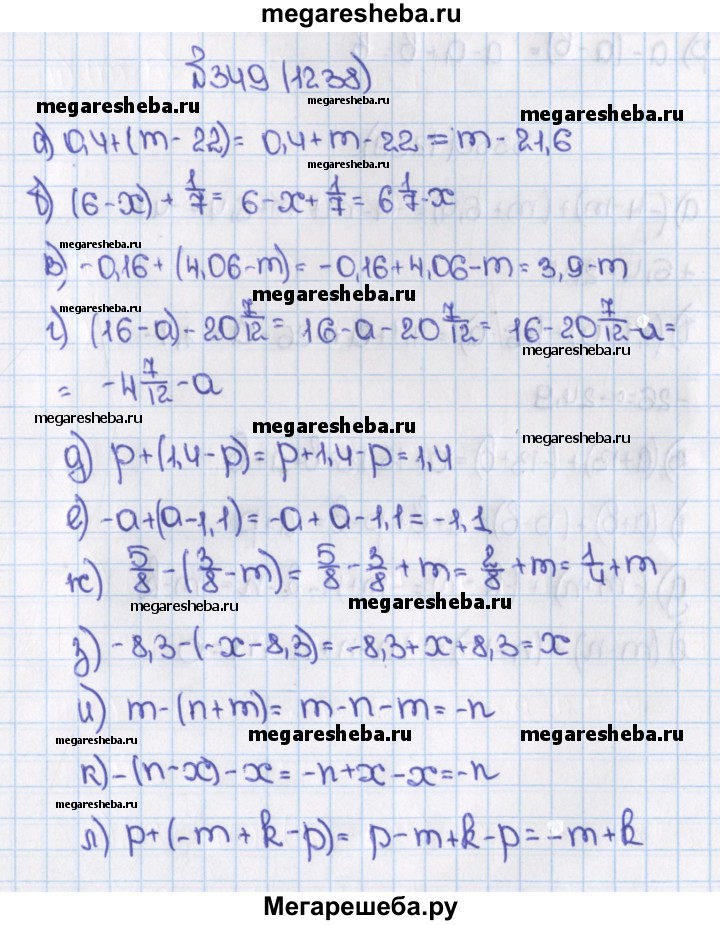 megaresheba.ru
№349 (1238)
megaresheba.ru megaresheba.ru megaresheba.ru
а) 0,4+(m-22)= 0,4+m-22=m-21,6
megaresheba.ru
б) (6-x)+1/7= 6-x+1/7= 6 1/7-x
megaresheba.ru
в) -0,16+(4,06-m)=-0,16+4,06-m=3,9-m
megaresheba.ru
г) (16-a)-20 7/12= 16-a-20 7/12= 16-20 7/12-a=
megaresheba.ru
= -4 7/12-a
megaresheba.ru
megaresheba.ru megaresheba.ru
д) p+(1,4-p)=p+1,4-p=1,4
е) -a+(a-1,1)=-a+a-1,1=-1,1
ж) 5/8-(3/8-m)= 5/8-3/8+m=2/8+m=1/4+m
megaresheba.ru megaresheba.ru
з) -8,3-(-x-8,3)=-8,3+x+8,3=x
и) m-(n+m)= m-n-m=-n
megaresheba.ru megaresheba.ru megaresheba.ru
к) -(n-x)-x=-n+x-x=-n
megaresheba.ru
л) p+(-m+k-p)= p-m+k-p=-m+k
Мегарешеба.ру